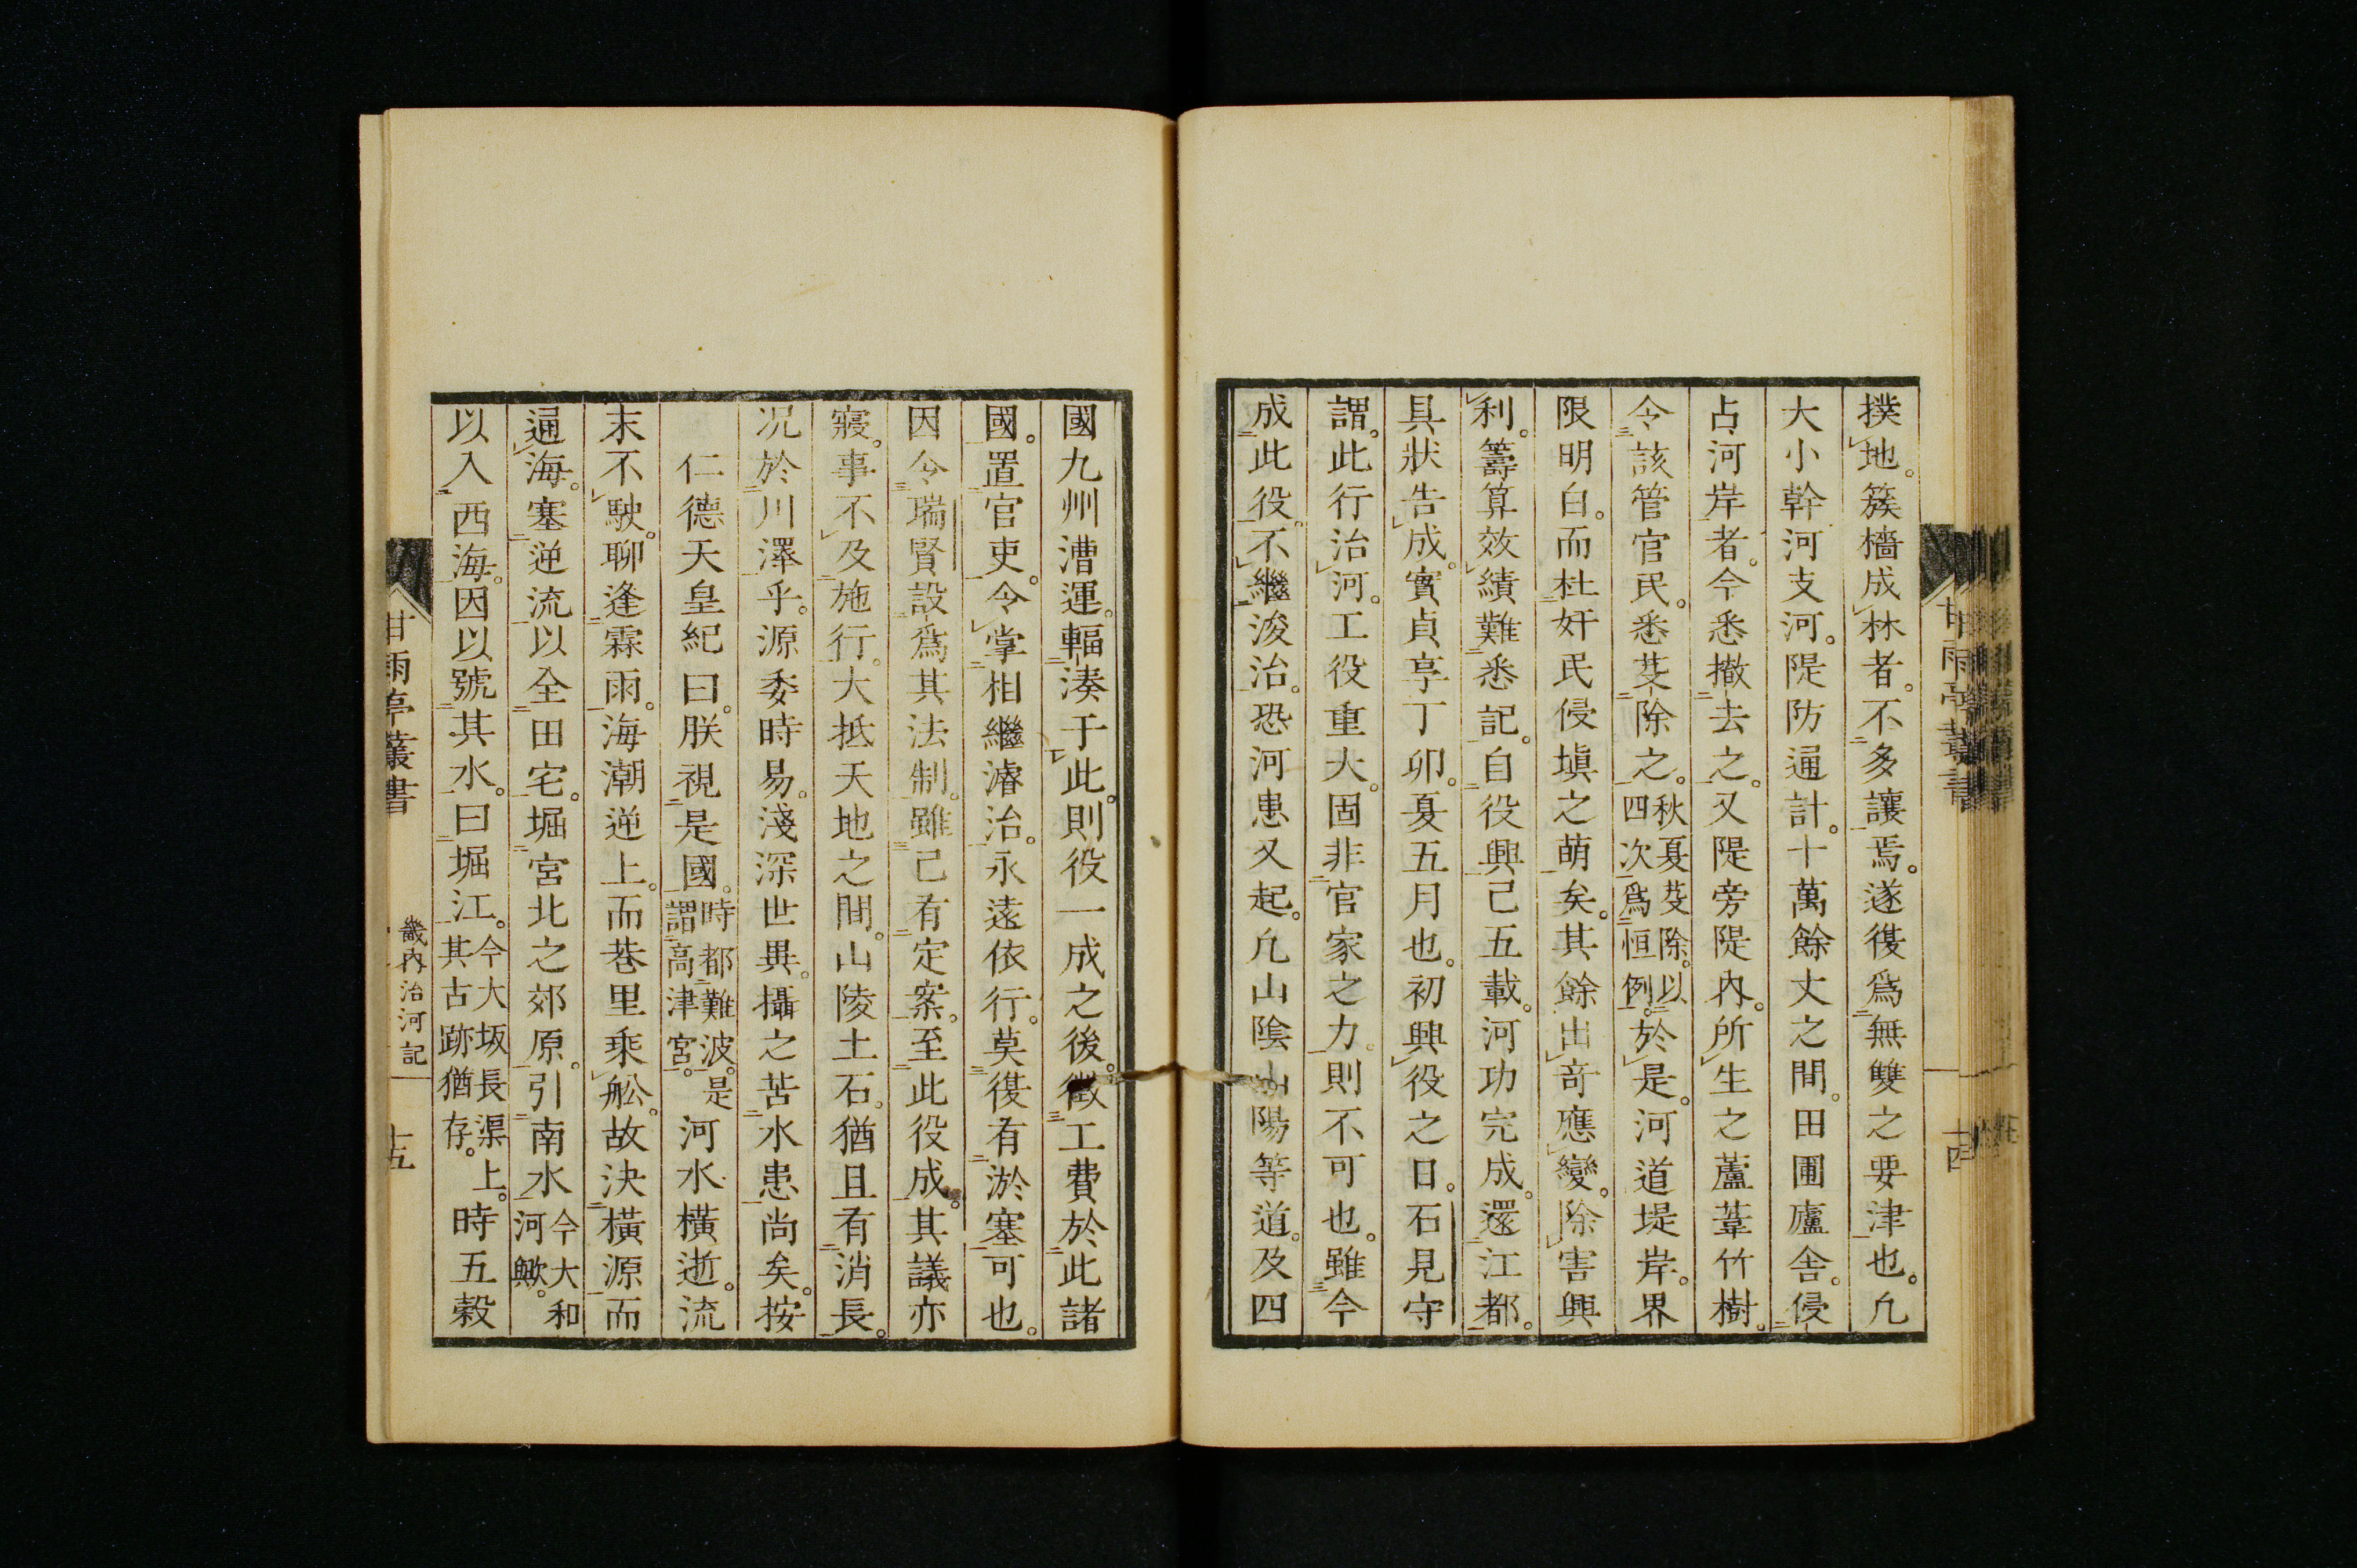 撲地。簇檣成林者。不多讓焉。遂復爲無雙之要津也。凢
大小幹河支河。隄防通計。十萬餘丈之間。田圃廬舍。侵
占河岸者。今悉撤去之。又隄旁隄內。所生之蘆葦竹樹。
令該管官民。悉芟除之。秋夏芟除。以四次爲恒例。於是。河道堤岸。界
限明白。而杜奸民侵塡之萌矣。其餘出奇應變。除害興
利。籌算效績難悉記。自役興己五載。河功完成。還江都。
具狀告成。實貞享丁卯。夏五月也。初興役之日。石見守
謂。此行治河。工役重大。固非官家之力。則不可也。雖今
成此役。不繼浚治。恐河患又起。凢山陰山陽等道。及四
國九州漕運。輻湊于此。則役一成之後。徵工費於此諸
國。置官吏。令掌相繼濬治。永遠依行。莫復有淤塞可也。
因令瑞賢設爲其法制。雖己有定案。至此役成。其議亦
寢。事不及施行。大抵天地之間。山陵土石。猶且有消長。
况於川澤乎。源委時易。淺深世異。攝之苦水患尚矣。按
仁德天皇紀曰。朕視是國。時都難波。是謂高津宮。河水橫逝。流
末不駛。聊逢霖雨。海潮逆上。而巷里乘舩。故決橫源而
通海。塞逆流以全田宅。堀宮北之郊原。引南水今大和河歟。
以入西海。因以號其水。曰堀江。今大坂長渠上。其古跡猶存。時五穀
甘雨亭叢書
畿內治河記
十五